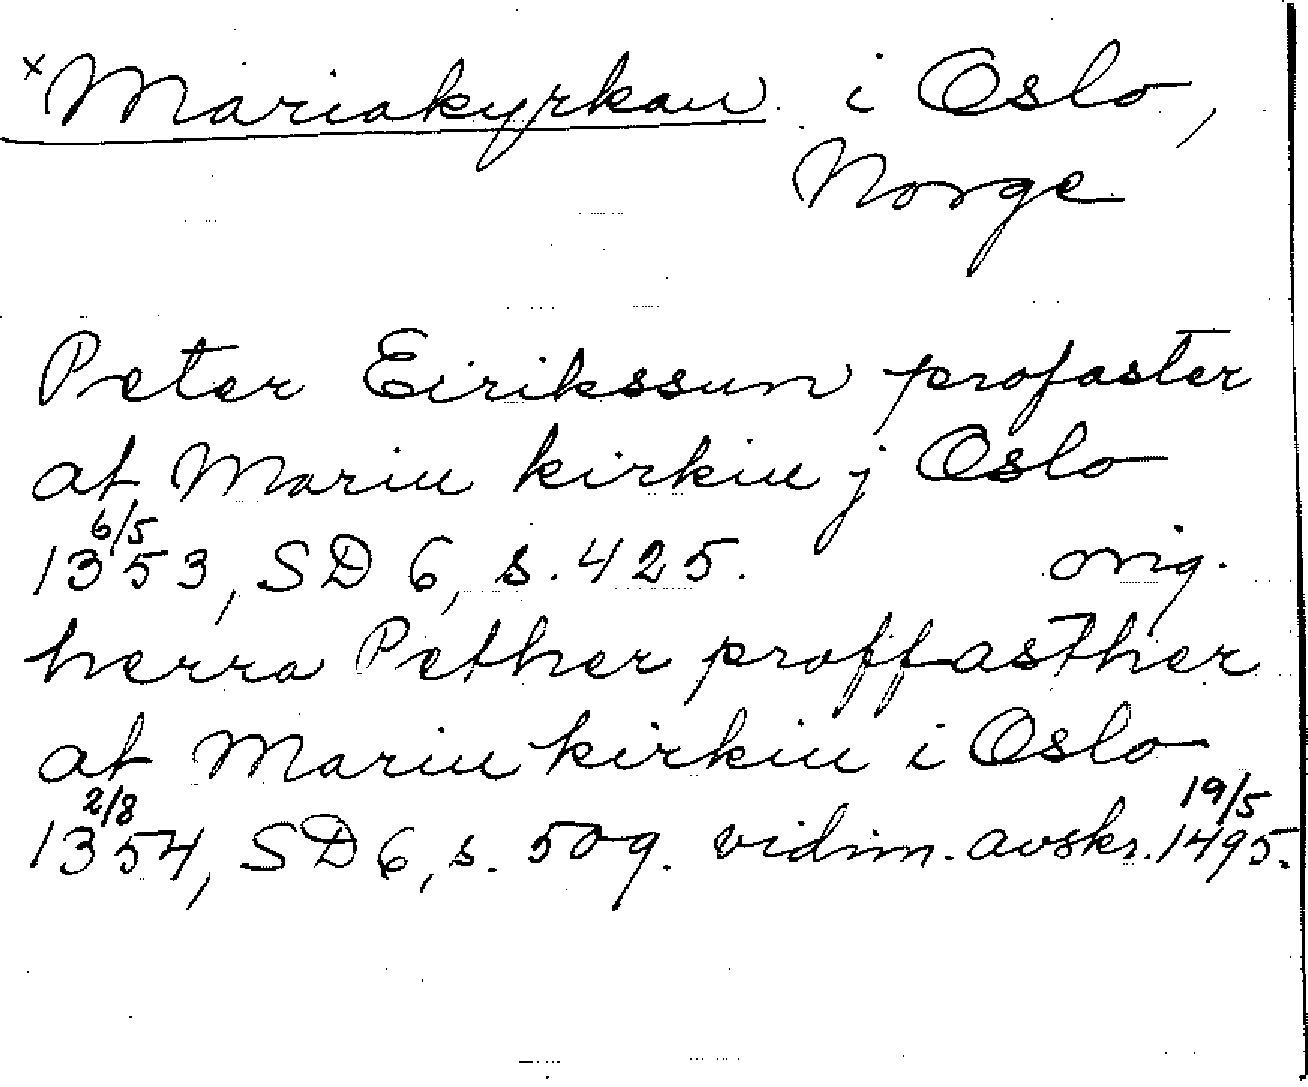 x Mariakyrkan i Oslo,
Norge
Peter Eirikssun profaster
at Mariu kirkiu j Oslo
6/5
1353, SD 6, s. 425. orig.
herra Pether proffasther
at Mariu kirkiu i Oslo
2/8 19/5
1354, SD 6, s. 509. vidim. avskr. 1495.